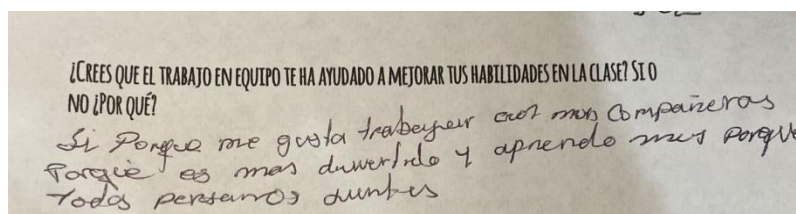 ¿CREES QUE EL TRABAJO EN EQUIPO TE HA AYUDADO A MEJORAR TUS HABILIDADES EN LA CLASE? SI O
NO ¿POR QUÉ?
Si Porque me gusta trabajar con mis Compañeras
Porque es mas duvertido y aprendo mas porque
Todos pensamos duntos